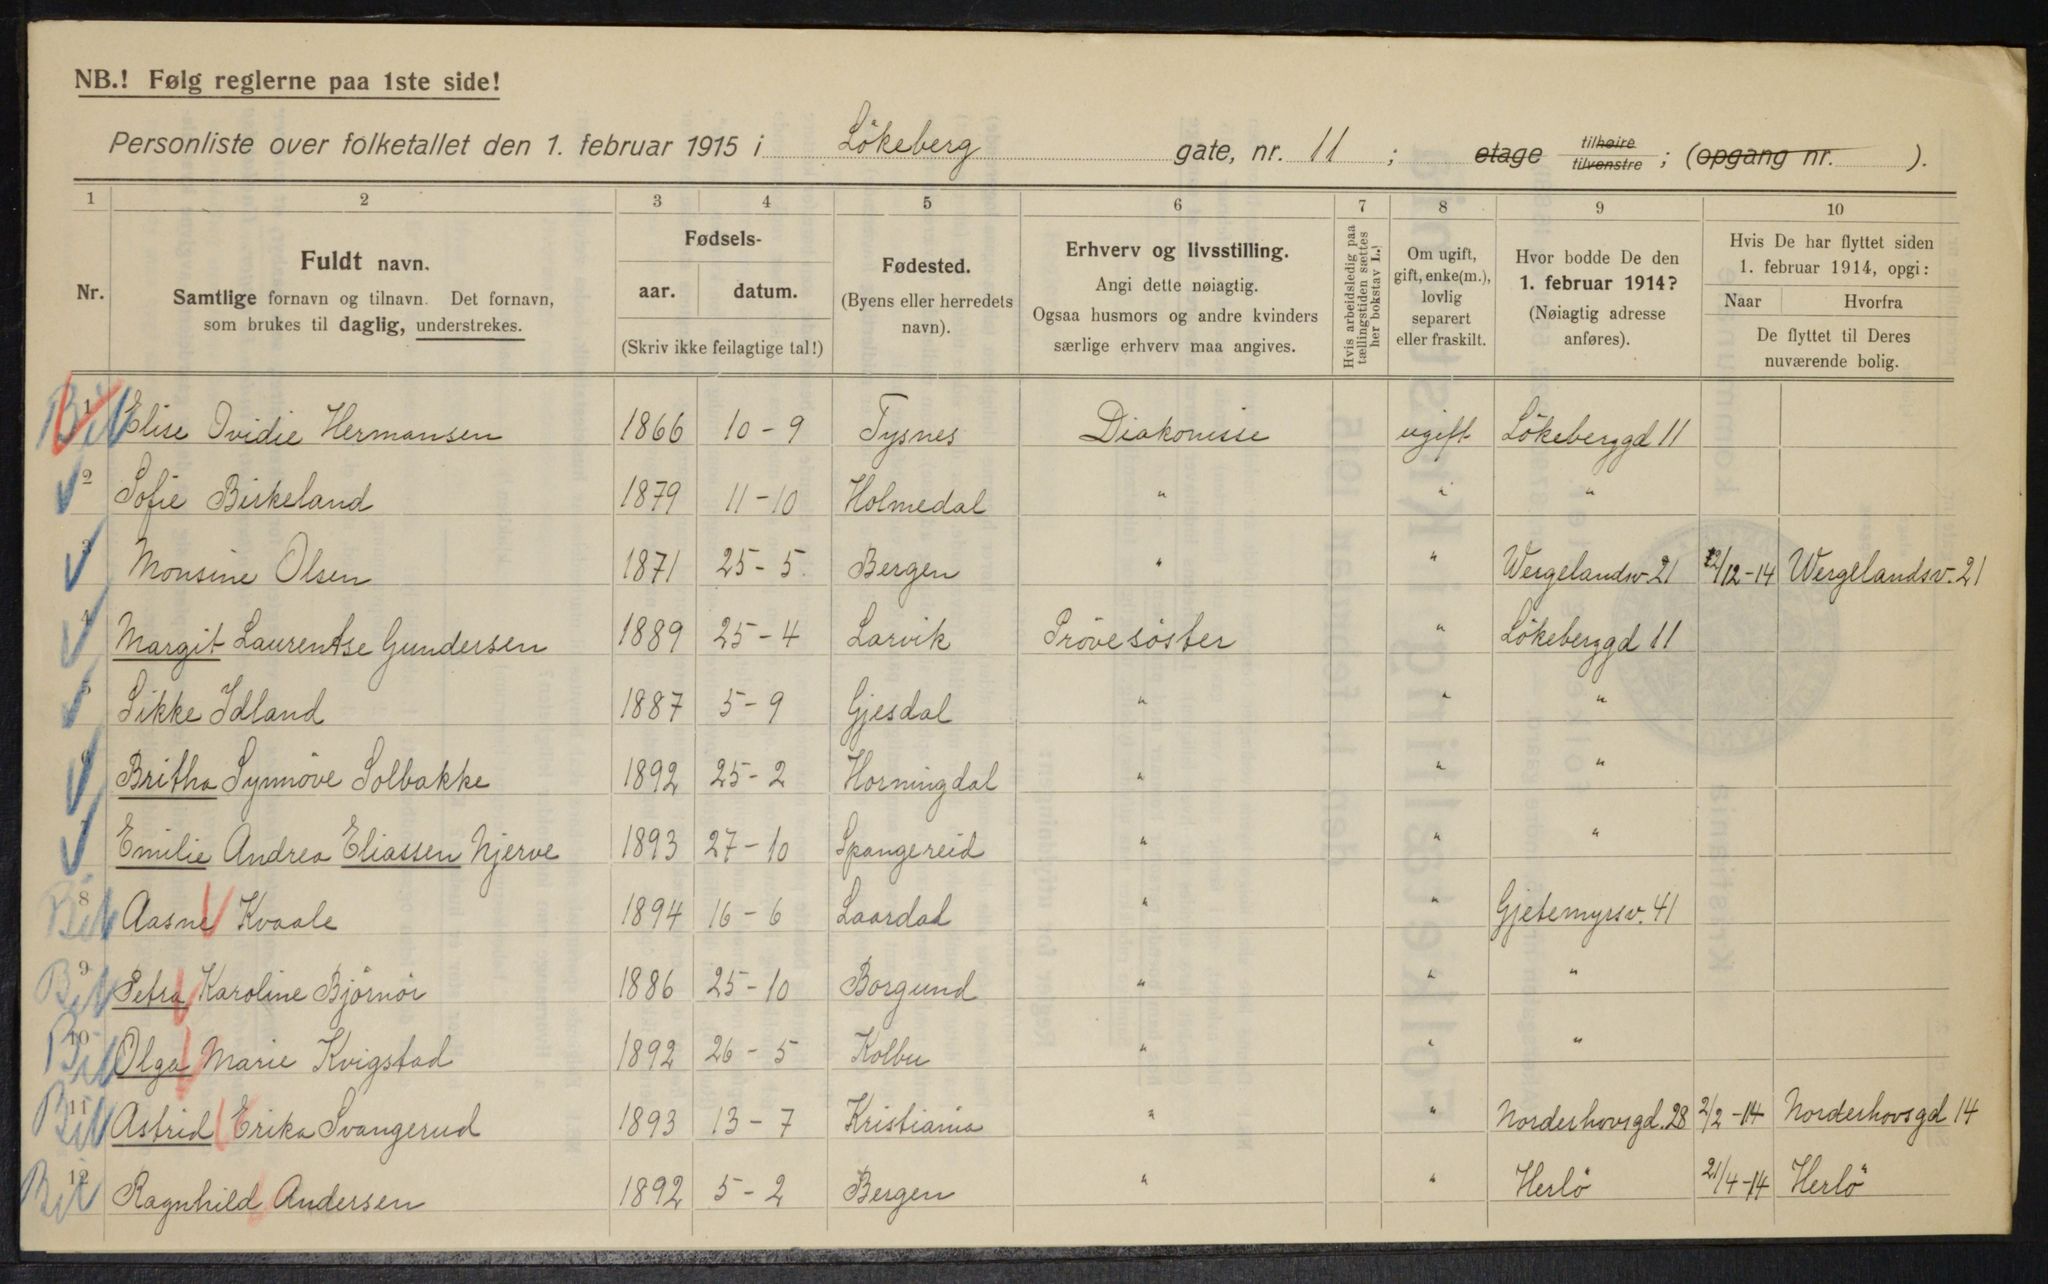 NB.! Følg reglerne paa 1ste side!
Personliste over folketallet den 1. februar 1915 i Lökeberg gate, nr. 11 ; etage tilhøire tilvenstre ; (opgang nr. ).
1 2 3 4 5 6 7 8 9 10
Nr.
Fuldt navn.
Samtlige fornavn og tilnavn. Det fornavn,
som brukes til daglig, understrekes.
Fødsels-
aar. datum.
(Skriv ikke feilagtige tal!)
Fødested.
(Byens eller herredets
navn).
Erhverv og livsstilling.
Angi dette nøiagtig.
Ogsaa husmors og andre kvinders
særlige erhverv maa angives.
Hvis arbeidsledig paa
tællingstiden sættes
her bokstav L.!
Om ugift,
gift, enke(m.),
lovlig
separert
eller fraskilt.
Hvor bodde De den
1. februar 1914?
(Nøiagtig adresse
anføres).
Hvis De har flyttet siden
1. februar 1914, opgi:
Naar Hvorfra
De flyttet til Deres
nuværende bolig.
1 Elise Ovidie Hermansen 1866 10-9 Tysnes Diakonisse ugift Lökeberggd 11
2 Sofie Birkeland 1879 11-10 Holmedal " " "
3 Monsine Olsen 1871 25-5 Bergen " " Wergelandsv. 21 12/12-14 Wergelandsv. 21
4 Margit Laurentse Gundersen 1889 25-4 Larvik Prövesöster " Lökeberggd 11
5 Sikke Idland 1887 5-9 Gjesdal " " "
6 Britha Synnöve Solbakke 1892 25-2 Horningdal " " "
7 Emilie Andrea Eliassen Njerve 1893 27-10 Spangereid " " "
8 Aasne Kvaale 1894 16-6 Laardal " " Gjetemyrsv. 41
9 Petra Karoline Björnör 1886 25-10 Borgund " " "
10 Olga Marie Kvigstad 1892 26-5 Kolbu " " "
11 Astrid Erika Svangerud 1893 13-7 Kristiania " " Norderhovsgd. 28 2/2-14 Norderhovsgd 14
12 Ragnhild Andersen 1892 5-2 Bergen " " Herlö 21/4-14 Herlö